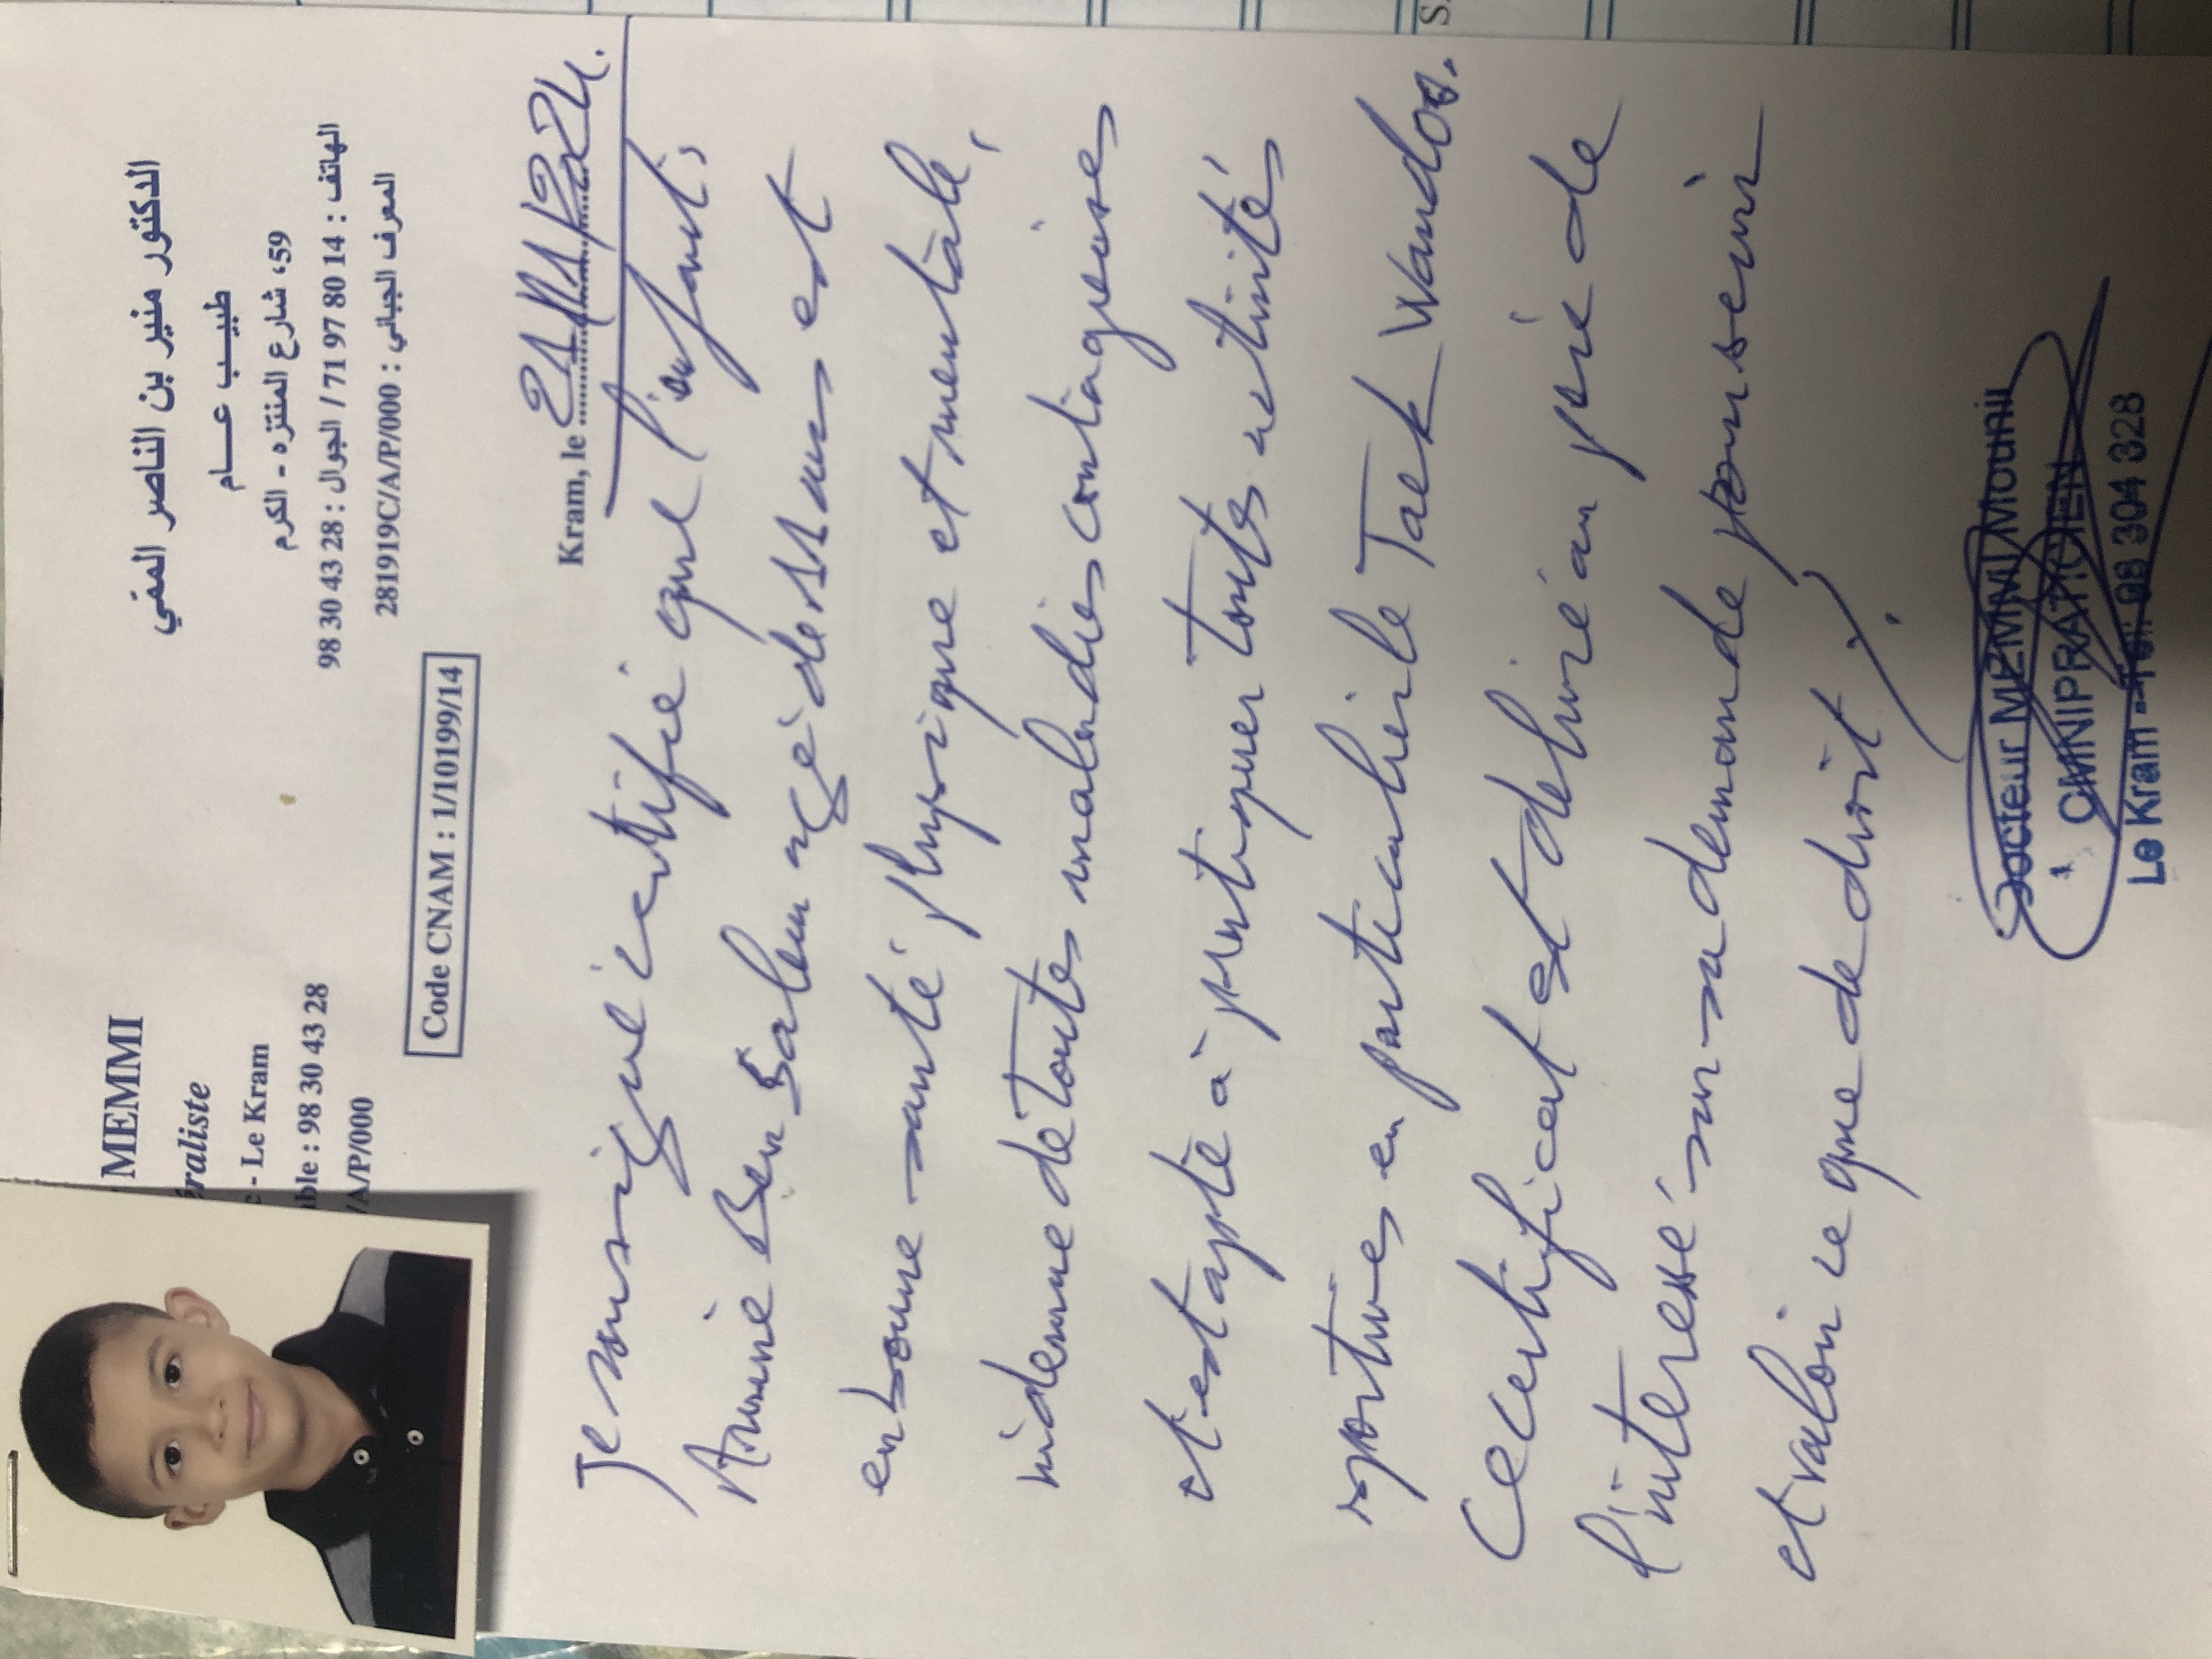 MEMMI
raliste
- Le Kram
ble : 98 30 43 28
/A/P/000
الدكتور منير بن الناصر الممّي
طبيب عـــام
59، شارع المنتزه - الكرم
الهاتف : 14 80 97 71 / الجوال : 28 43 30 98
المعرف الجبائي : 281919C/A/P/000
Code CNAM : 1/10199/14
Kram, le 21/11/2024.
Je soussigné certifie que l'enfant :
Amine Ben Salem agé de 11 ans est
en bonne santé physique et mentale,
indemne de toutes maladies contagieuses
et est apte à pratiquer toutes activités
sportives en particulier le Taek Wandoo.
Ce certificat est délivré au près de
l'interessé sur sa demande pour servir
et valoir ce que de droit.
Docteur MEMMI Mounir
OMNIPRATICIEN
Le Kram - Tél: 98 304 328